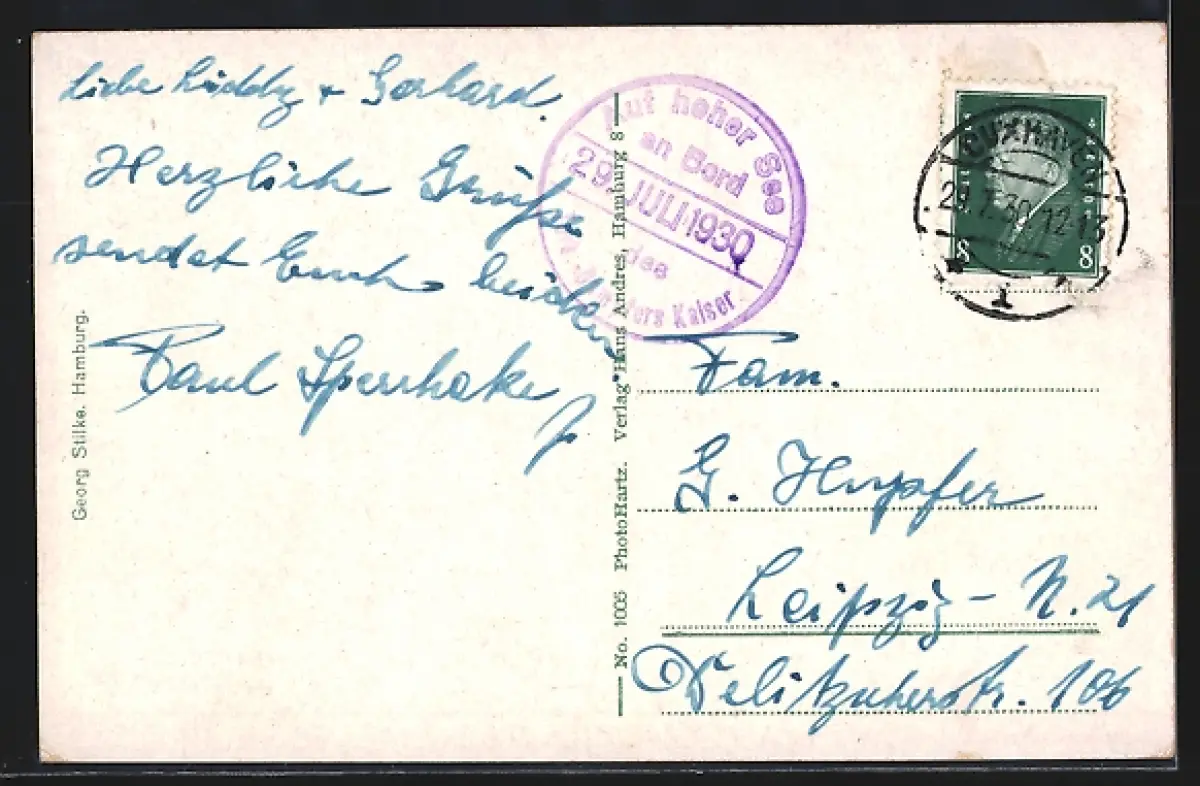 Liebe Luddy + Gerhard.
Herzliche Grüße
sendet Euch beiden
Paul Sperrhake
Georg Stilke. Hamburg.
No. 1005 PhotoHartz. Verlag Hans Andres, Hamburg 8
Auf hoher See
an Bord
29. JULI 1930
des
Kaiser
CUXHAVEN
29.7.30.12-13
1
8 8
Fam.
G. Hupfer
Leipzig - N. 21
Delitzscherstr. 106